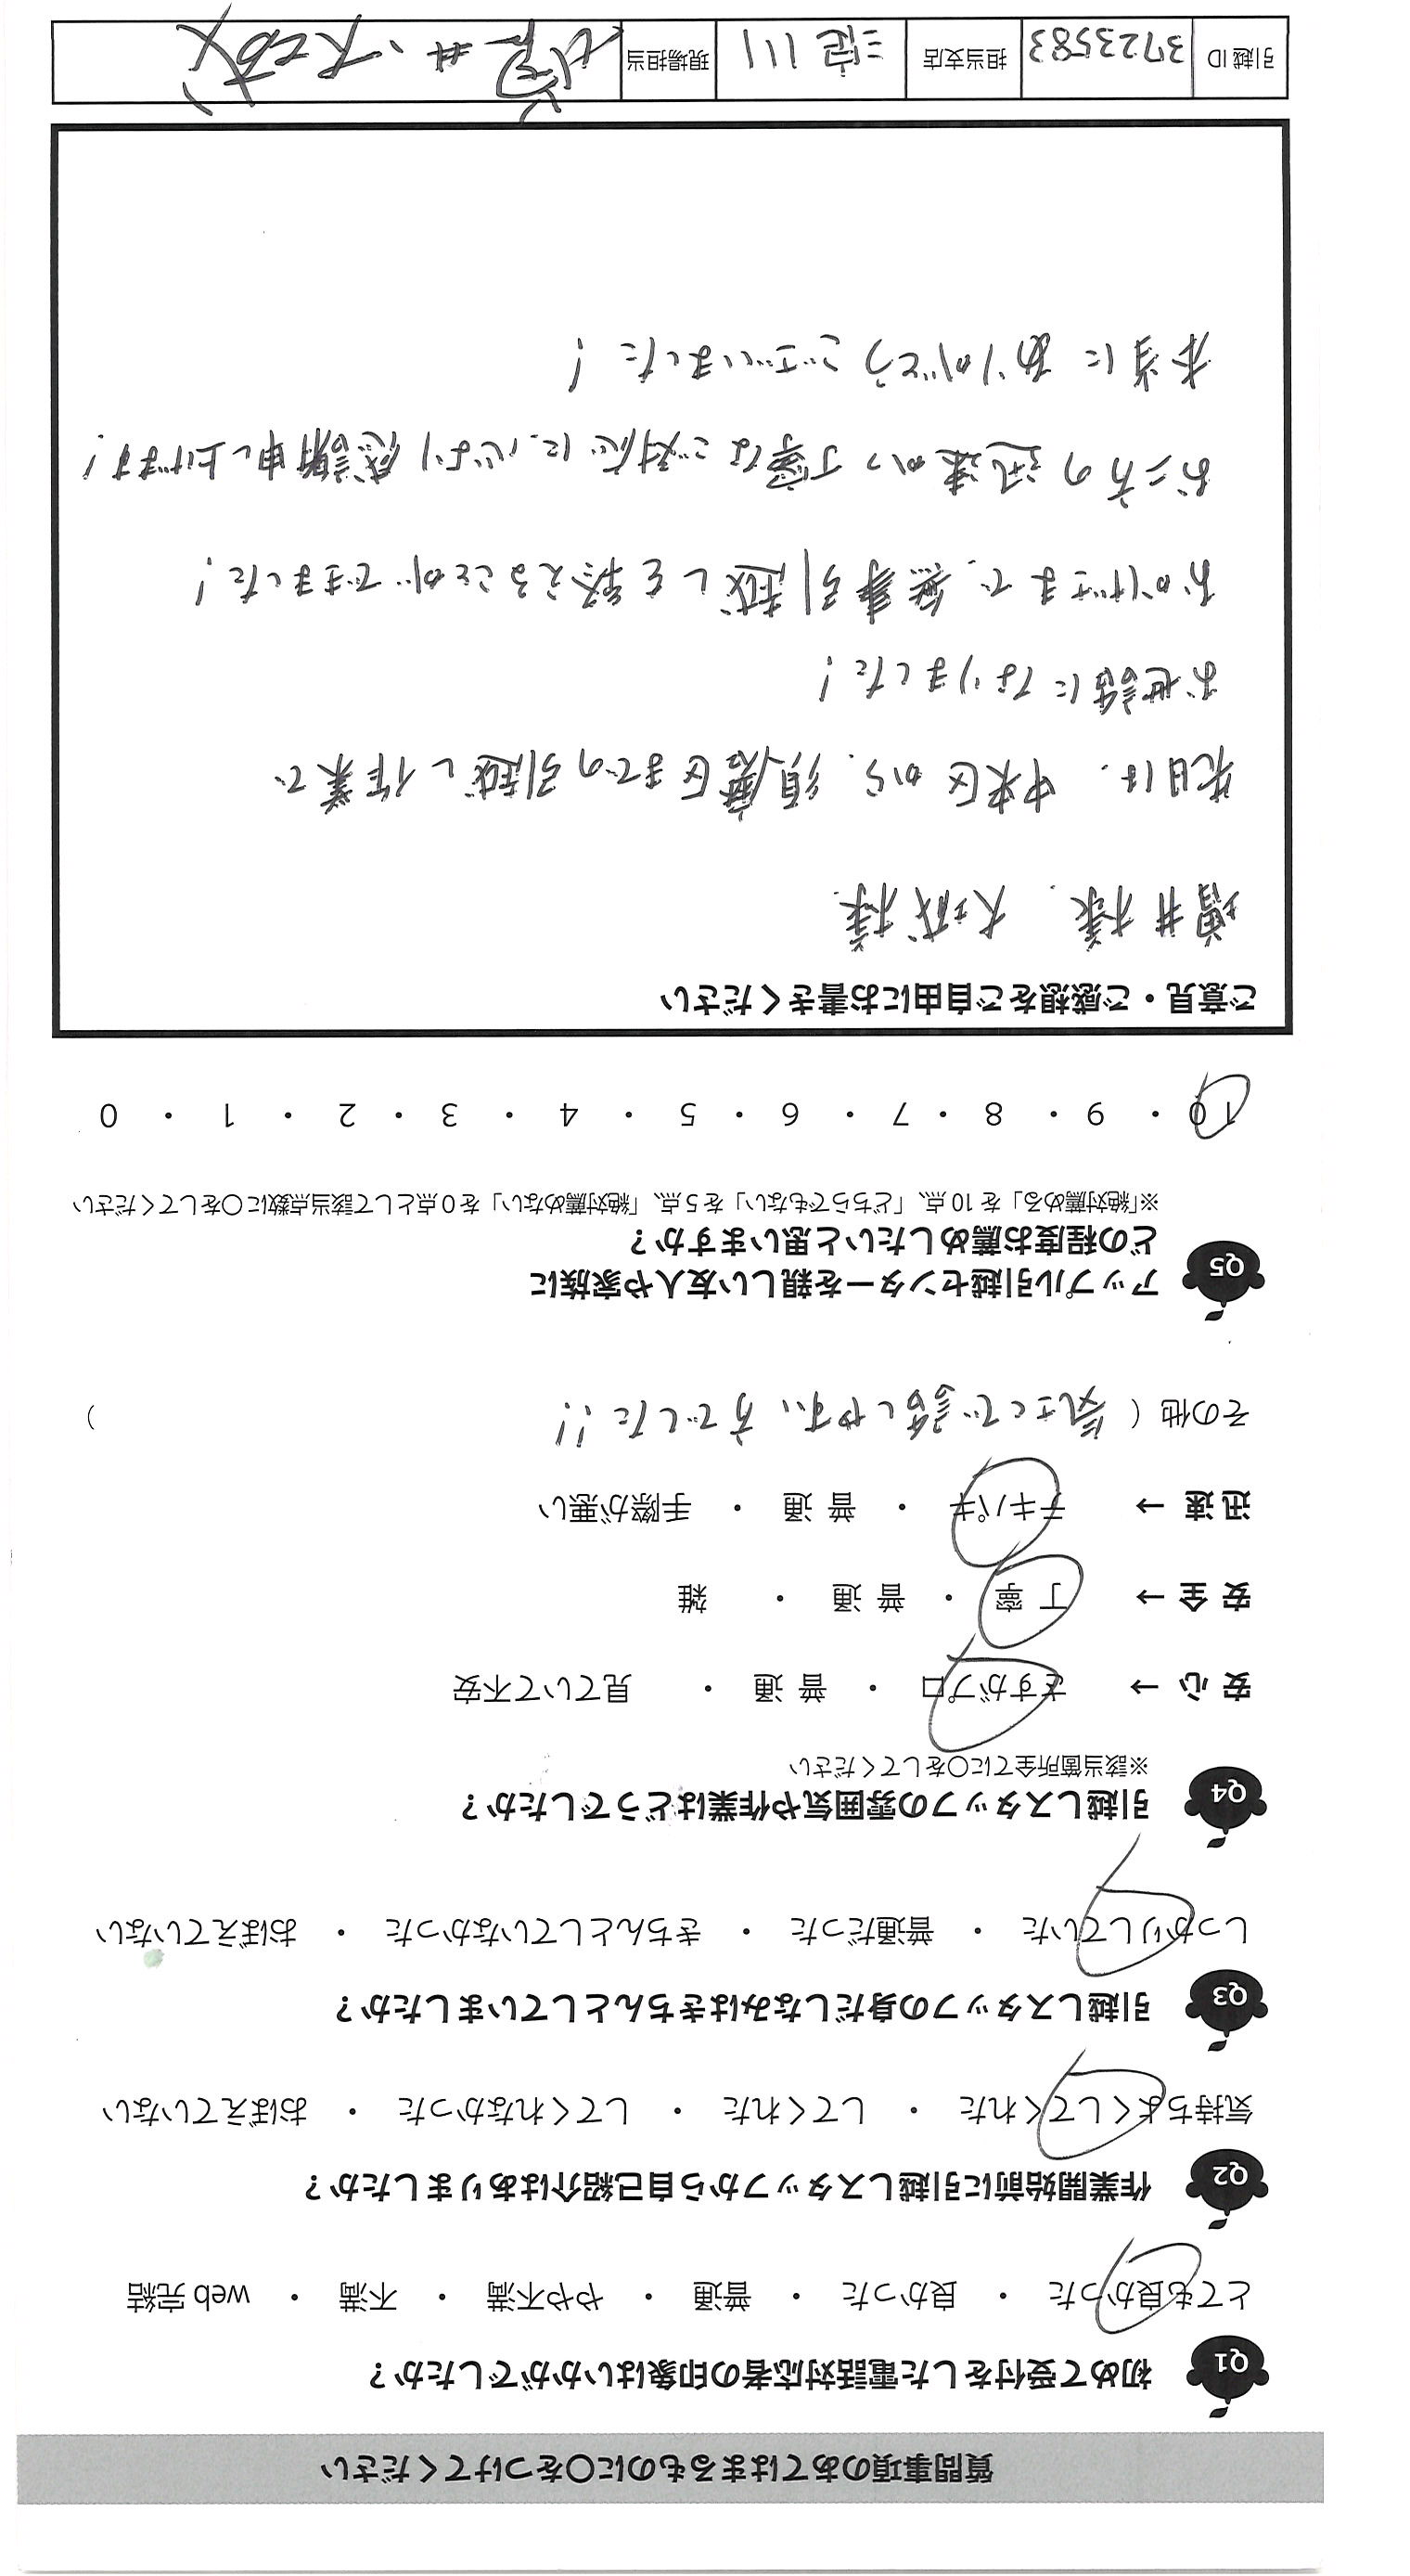 質問事項のあてはまるものに〇をつけてください
Q1 初めて受付をした電話対応者の印象はいかがでしたか？
とても良かった ・ 良かった ・ 普通 ・ やや不満 ・ 不満 ・ web 完結
Q2 作業開始前に引越しスタッフから自己紹介はありましたか？
気持ちよくしてくれた ・ してくれた ・ してくれなかった ・ おぼえていない
Q3 引越しスタッフの身だしなみはきちんとしていましたか？
しっかりしていた ・ 普通だった ・ きちんとしていなかった ・ おぼえていない
Q4 引越しスタッフの雰囲気や作業はどうでしたか？
※該当箇所全てに〇をしてください
安 心 → さすがプロ ・ 普 通 ・ 見ていて不安
安 全 → 丁 寧 ・ 普 通 ・ 雑
迅 速 → テキパキ ・ 普 通 ・ 手際が悪い
その他 （ 気さくで話しやすい方でした!! ）
Q5 アップル引越センターを親しい友人や家族に
どの程度お薦めしたいと思いますか？
※「絶対薦める」を 10 点、「どちらでもない」を 5 点、「絶対薦めない」を 0 点として該当点数に〇をしてください
10 ・ 9 ・ 8 ・ 7 ・ 6 ・ 5 ・ 4 ・ 3 ・ 2 ・ 1 ・ 0
ご意見・ご感想をご自由にお書きください
増井様、大城様
先日は、中央区から、須磨区までの引越し作業で
お世話になりました！
おかげさまで、無事引越しを終えることができました！
お二方の迅速かつ丁寧なご対応に、心より感謝申し上げます！
本当にありがとうございました！
引越 ID 3723583 担当支店 淀川 現場担当 増井、大城